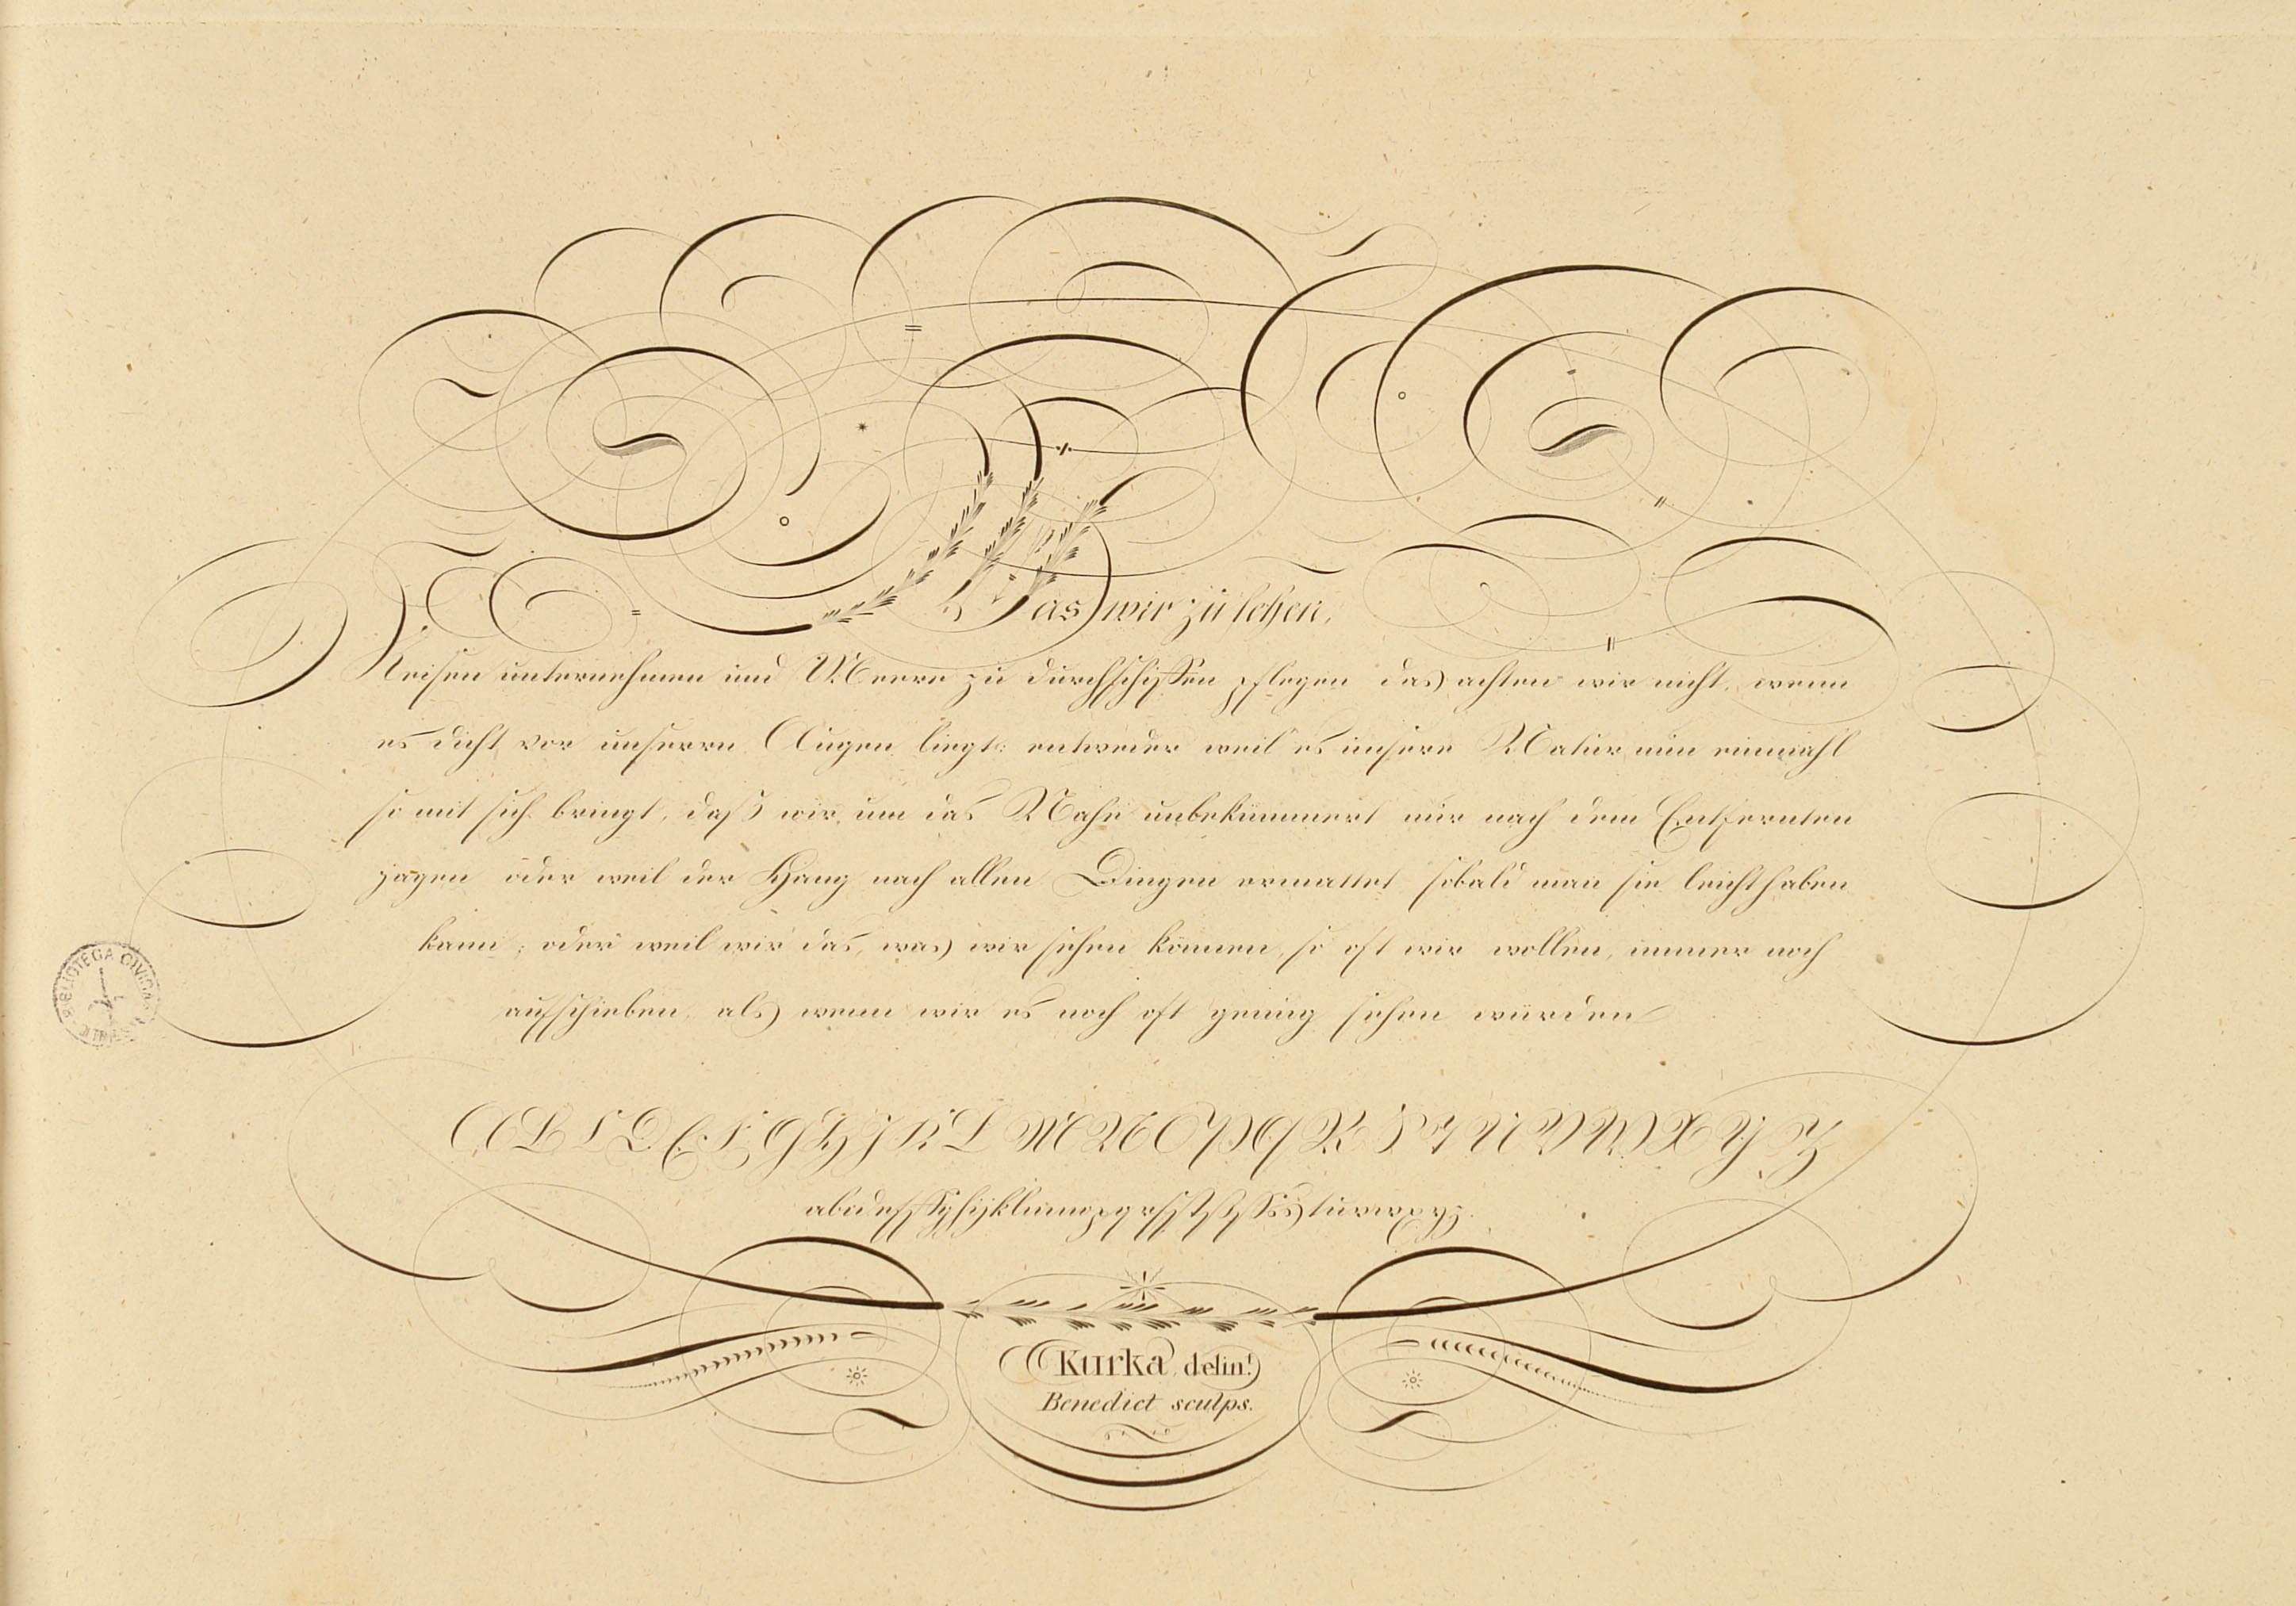 Was wir zu sehen,
Reisen unternehmen und Meere zu durchschiffen pflegen das achten wir nicht, wenn
es dicht vor unseren Augen liegt: entweder weil es unsere Natur nun einmahl
so mit sich bringt, daß wir um das Nahe unbekümmert nur nach dem Entfernten
jagen oder weil der Hang nach allen Dingen ermattet sobald man sie leicht haben
kann; oder weil wir das, was wir sehen können, so oft wir wollen, immer noch
aufschieben, als wenn wir es noch oft genug sehen würden
A B C D E F G H J K L M N O P Q R S T U V W X Y Z
Kurka delin!
Benedict sculps.
BIBLIOTECA CIVICA